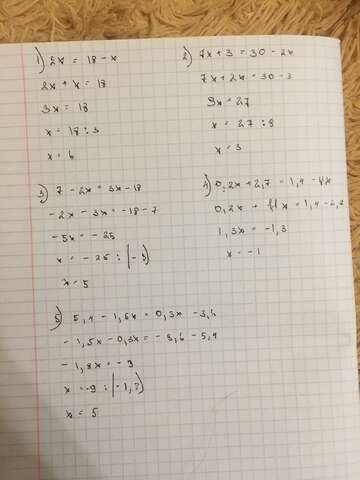 1) 2x = 18 - x
2x + x = 18
3x = 18
x = 18 : 3
x = 6
2) 7x + 3 = 30 - 2x
7x + 2x = 30 - 3
9x = 27
x = 27 : 9
x = 3
3) 7 - 2x = 3x - 18
-2x - 3x = -18 - 7
-5x = -25
x = -25 : (-5)
x = 5
4) 0,2x + 2,7 = 1,4 -
0,2x + = 1,4 - 2,
1,3x = -1,3
x = -1
5) 5,4 - 1,5x = 0,3x - 3,6
-1,5x - 0,3x = -3,6 - 5,4
-1,8x = -9
x = -9 : (-1,8)
x = 5